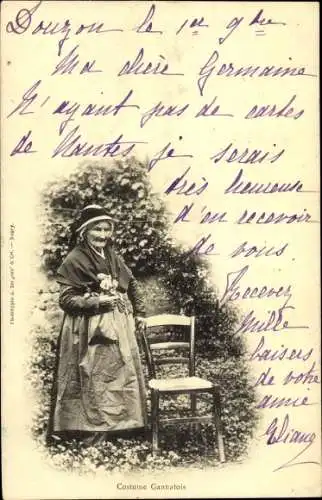 Douzon le 1er 9bre
Ma chère Germaine
N'ayant pas de cartes
de Nantes je serais
très heureuse
d'en recevoir
de vous.
Recevez
mille
baisers
de votre
amie
Eliane
Costume Gannatois